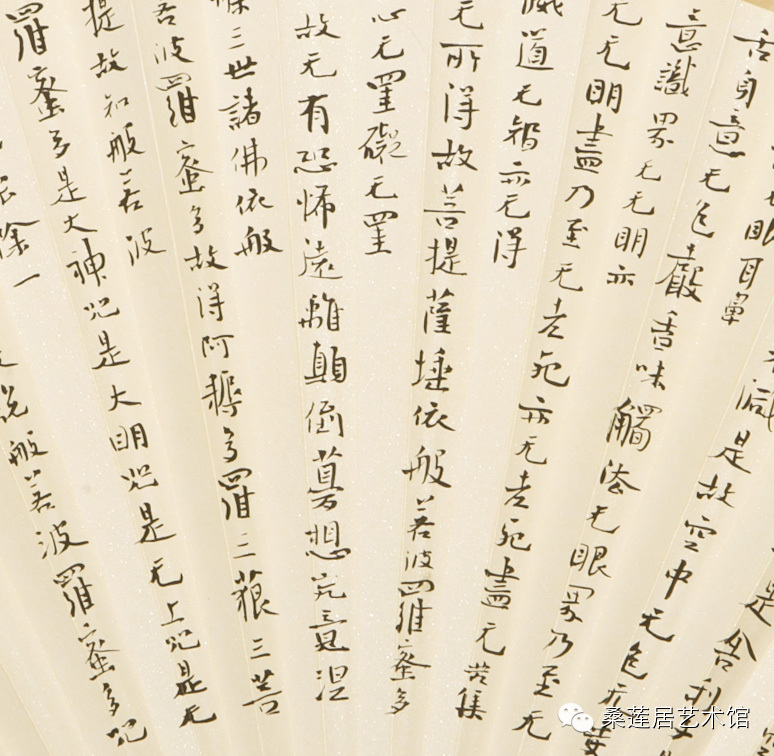 是舍利
减是故空中无色无
眼耳鼻
舌身意无色聲香味觸法无眼界乃至无
意識界无无明亦
无无明盡乃至无老死亦无老死盡无苦集
滅道无智亦无得
无所得故菩提薩埵依般若波羅蜜多
心无罣礙无罣
故无有恐怖遠離顛倒夢想究竟涅
三世諸佛依般
若波羅蜜多故得阿耨多羅三藐三菩
提故知般若波
羅蜜多是大神咒是大明咒是无上咒是无
除一
說般若波羅蜜多咒
桑莲居艺术馆